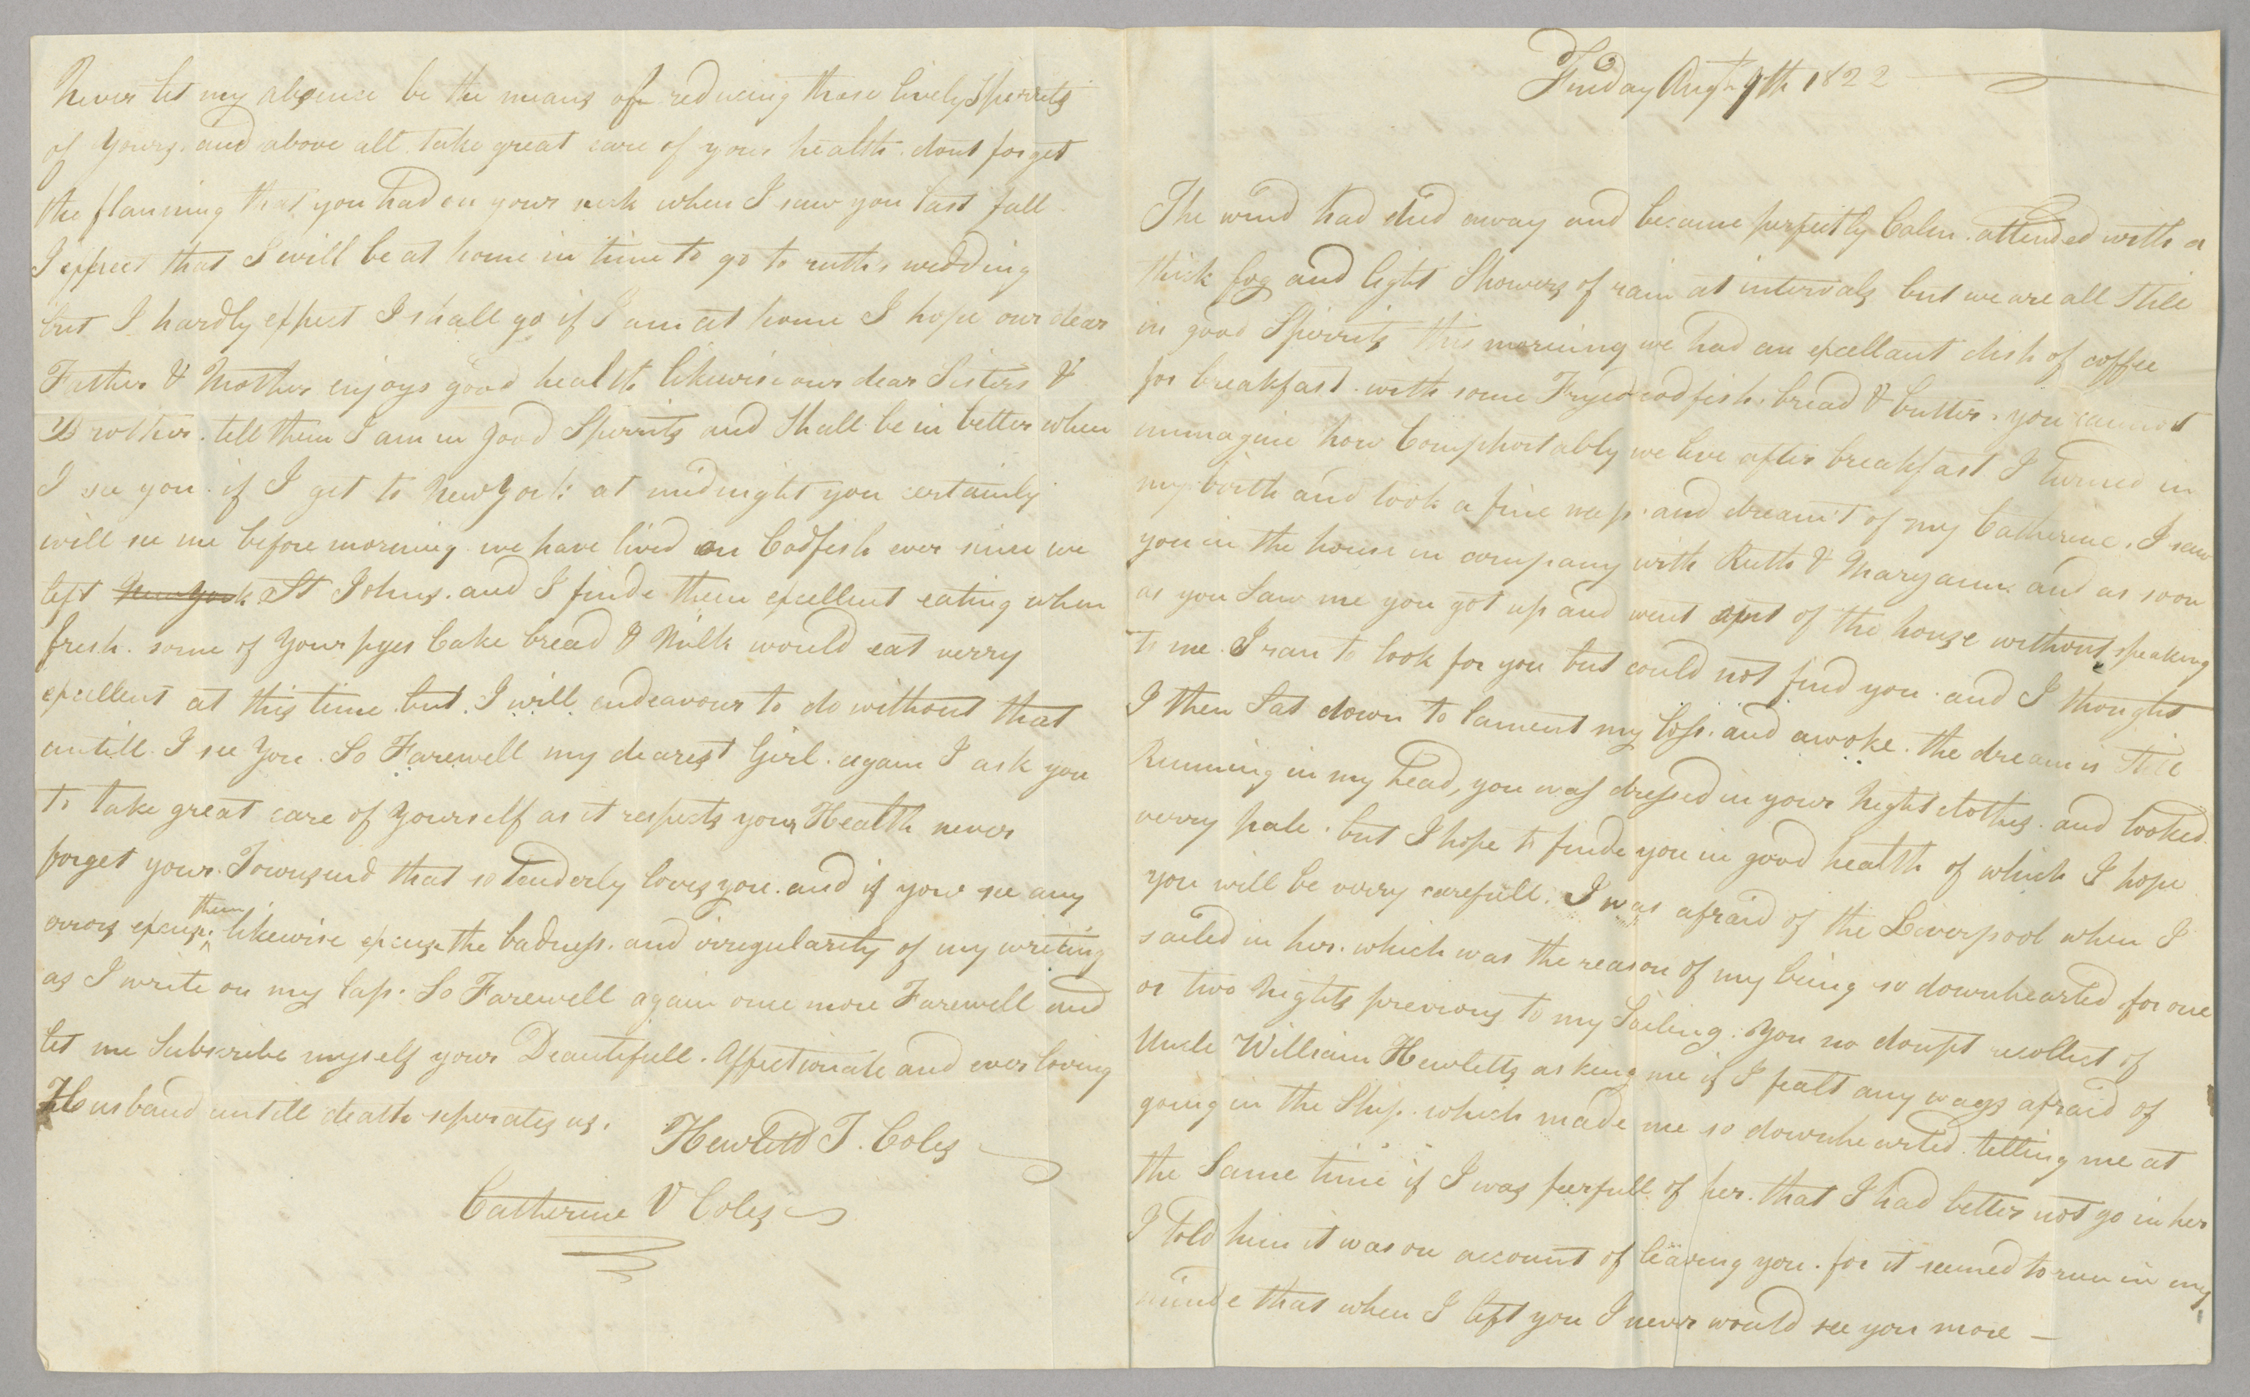 Never let my absence be the means of reducing those lively Spirrits
of yours. and above all. take great care of your health. dont forget
the flanning that you had on your neck when I saw you last fall
I expect that I will be at home in time to go to ruths wedding
but I hardly expect I shall go if I am at home I hope our dear
Father & Mother enjoys good health likewise our dear Sisters &
Brother. tell them I am in good Spirrits and Shall be in better when
I see you. if I get to New York at midnight you certainly
will see me before morning. we have lived on Codfish ever since we
left New York St Johns. and I finde them excellent eating when
fresh. some of your pyes Cake bread & Milk would eat verry
excellent at this time. but. I will endeavour to do without that
untill I see You. So Farewell my dearest Girl. again I ask you
to take great care of yourself as it respects your Health never
forget your. Townsend that so Tenderly loves you. and if you see any
errors excuse them. likewise excuse the badness. and irregularity of my writing
as I write on my lap. So Farewell again once more Farewell and
let me Subscribe myself your Beautifull. Affectionate and ever loving
Husband untill death seperates us.
Hewlett T. Coles
Catherine V Coles
Friday Augt. 9th 1822
The wind had died away and became perfectly Calm. attended with a
thick fog and light Showers of rain at intervals but we are all Still
in good Spirrits this morning we had an excellant dish of coffee
for breakfast. with some Fryed codfish. bread & butter. you cannot
immagine how Comphortably we live after breakfast I turned in
my birth and took a fine nap. and dream't of my Catherine. I saw
you in the house in company with Ruth & Maryann. and as soon
as you Saw me you got up and went out of the house without speaking
to me. I ran to look for you but could not find you. and I thought
I then Sat down to lament my loss. and awoke. the dream is Still
Running in my head, you was dressed in your Night clothes. and looked
verry pale. but I hope to finde you in good health of which I hope
you will be verry carefull. I was afraid of the Liverpool when I
sailed in her. which was the reason of my being so downhearted for one
or two Nights previous to my Sailing. You no doupt recollect of
Uncle William Hewletts asking me if I fealt any ways afraid of
going in the Ship. which made me so downhearted. telling me at
the Same time if I was feerfull of her. that I had better not go in her
I told him it was on account of leaving you. for it seemed to run in my
minde that when I left you I never would see you more —